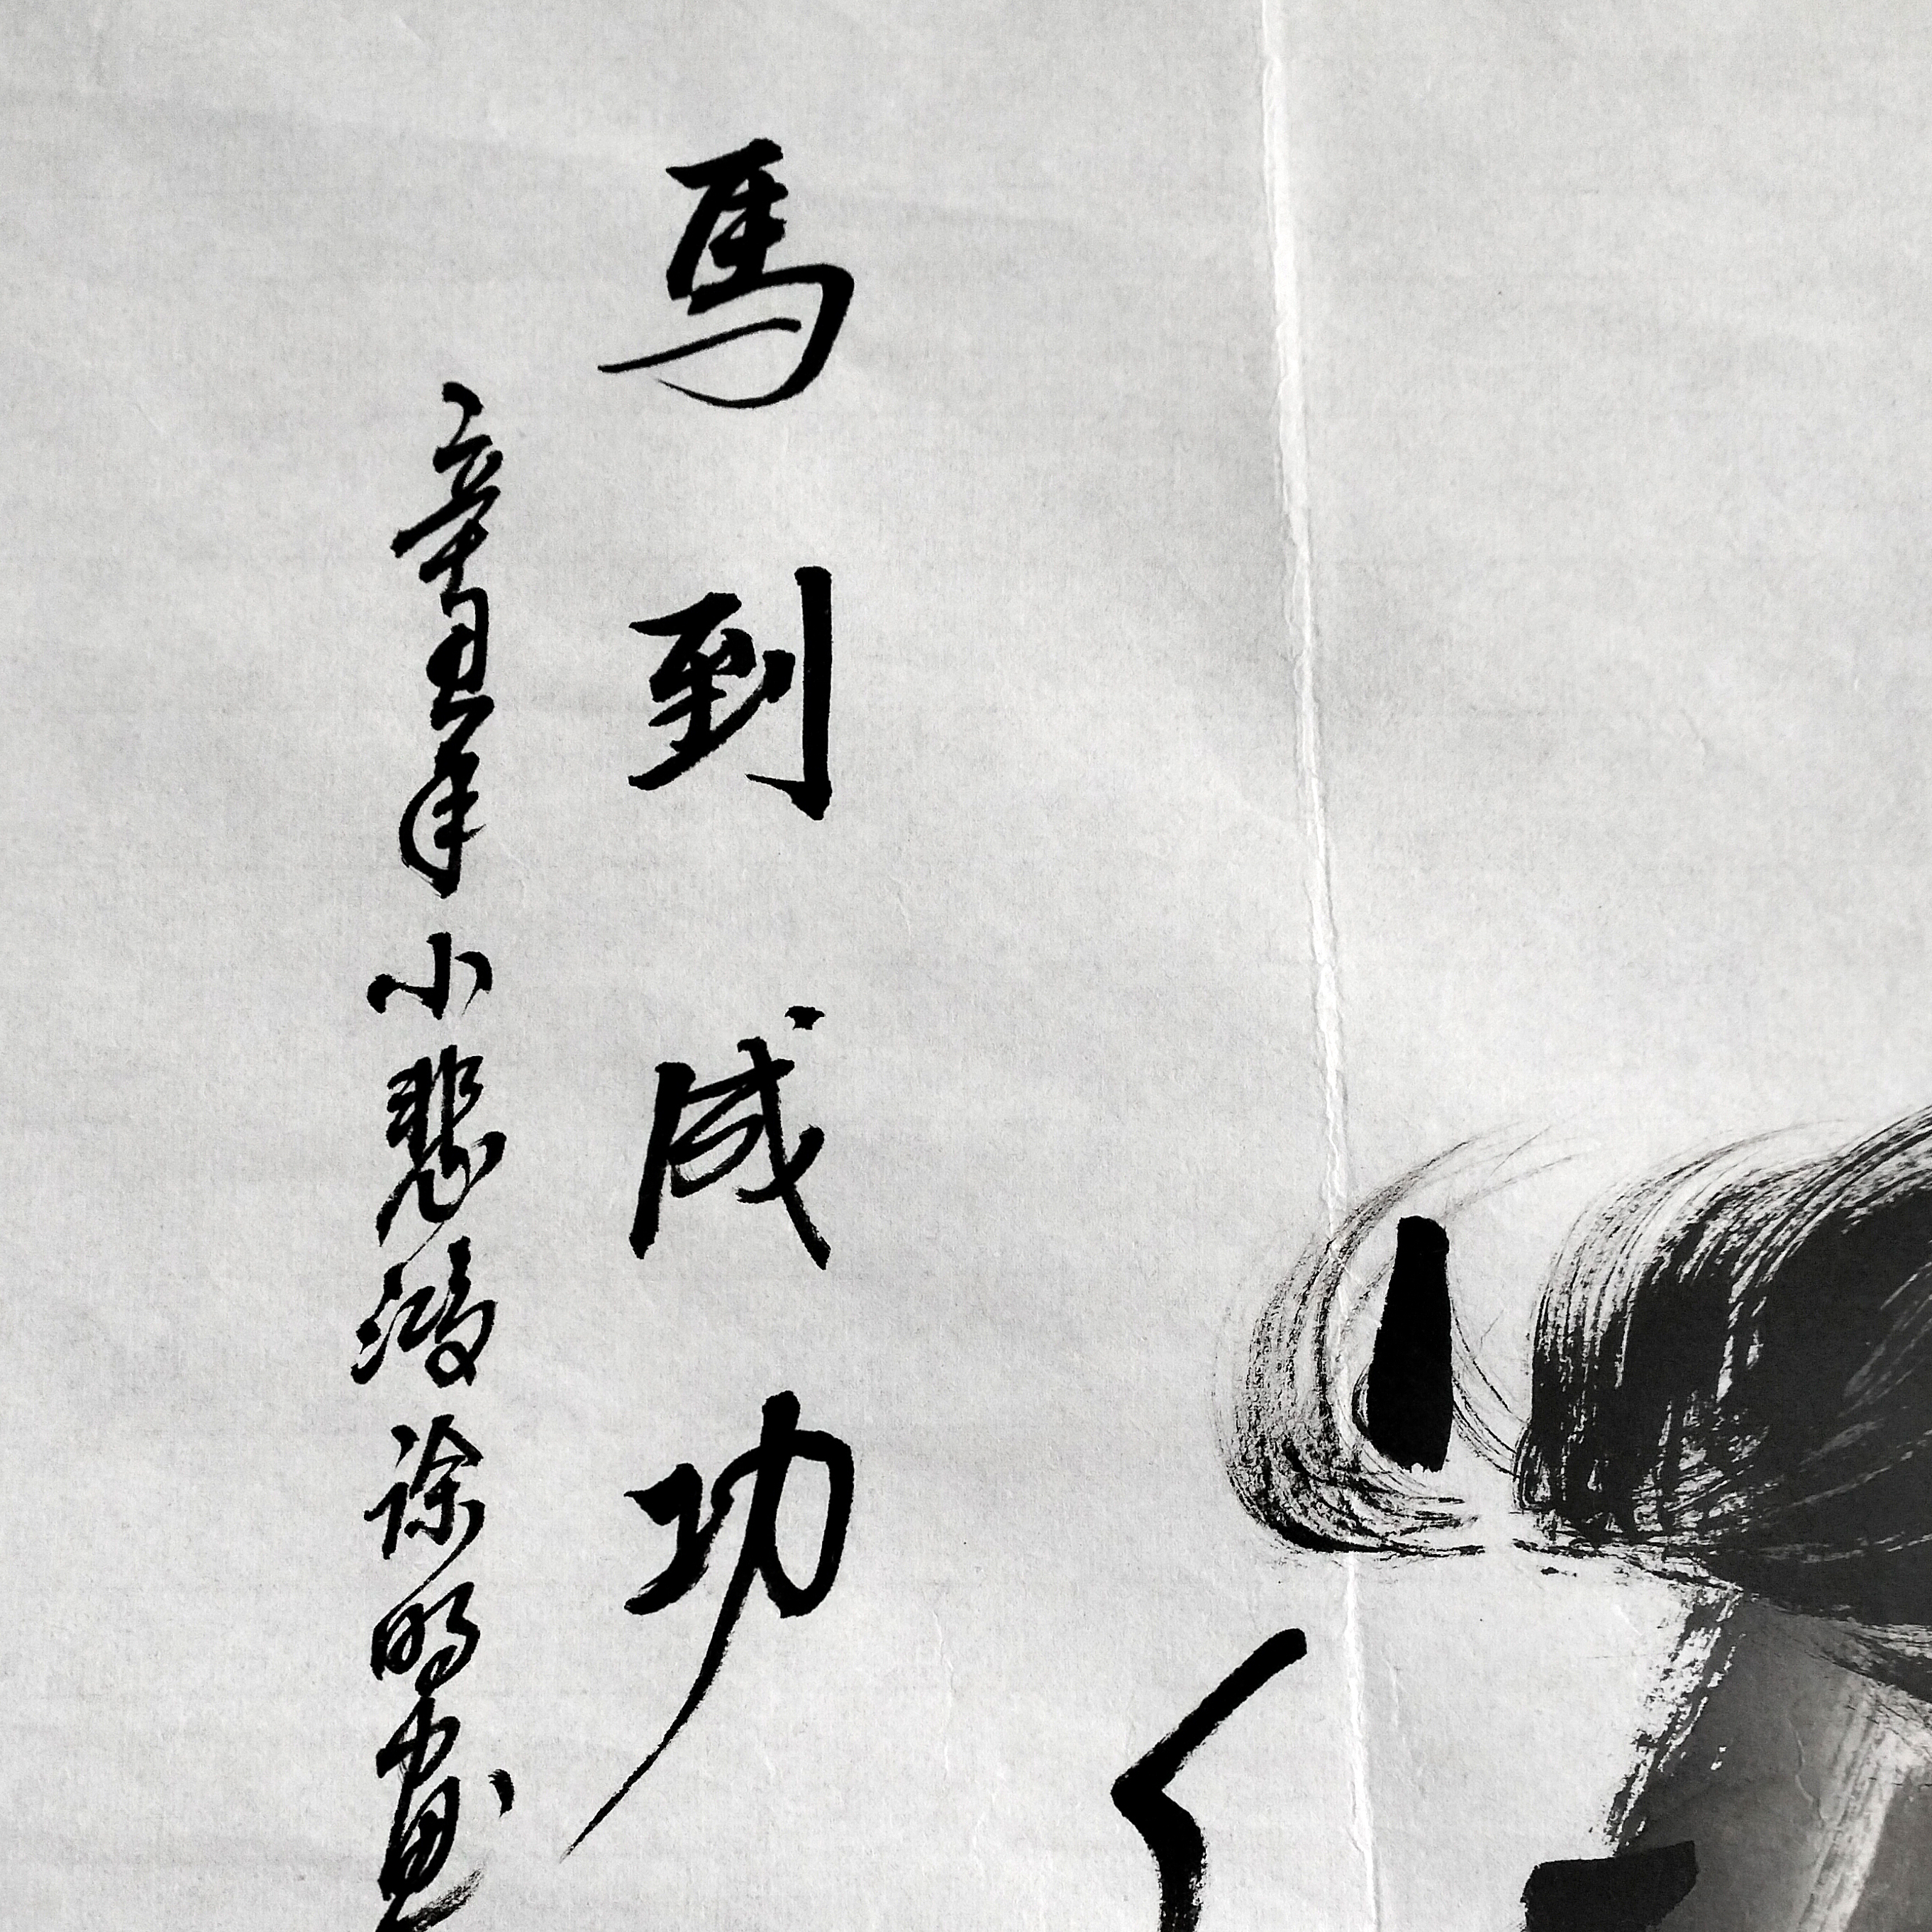 馬到成功
辛丑年小悲鴻涂明畫